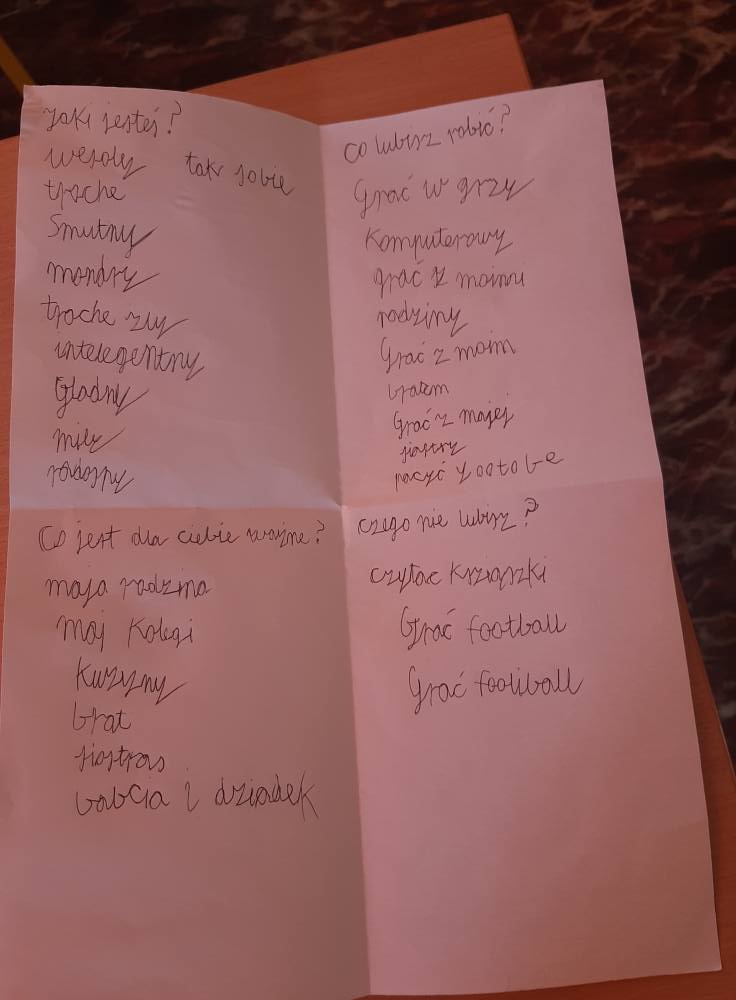 Jaki jesteś?
wesoly tak sobie
troche
Smutny
mondry
troche zly
intelegentny
Gladny
mily
radosny
Co lubisz robić?
Grać w grzy
Komputerowy
grać z moimi
rodziny
Grać z moim
bratem
Grać z mojej
siostry
Co jest dla ciebie wazne?
moja rodzina
moj Kolegi
Kuzyny
brat
siostras
babcia i dziadek
czego nie lubisz?
czytac Krziązki
Grać football
Grać football